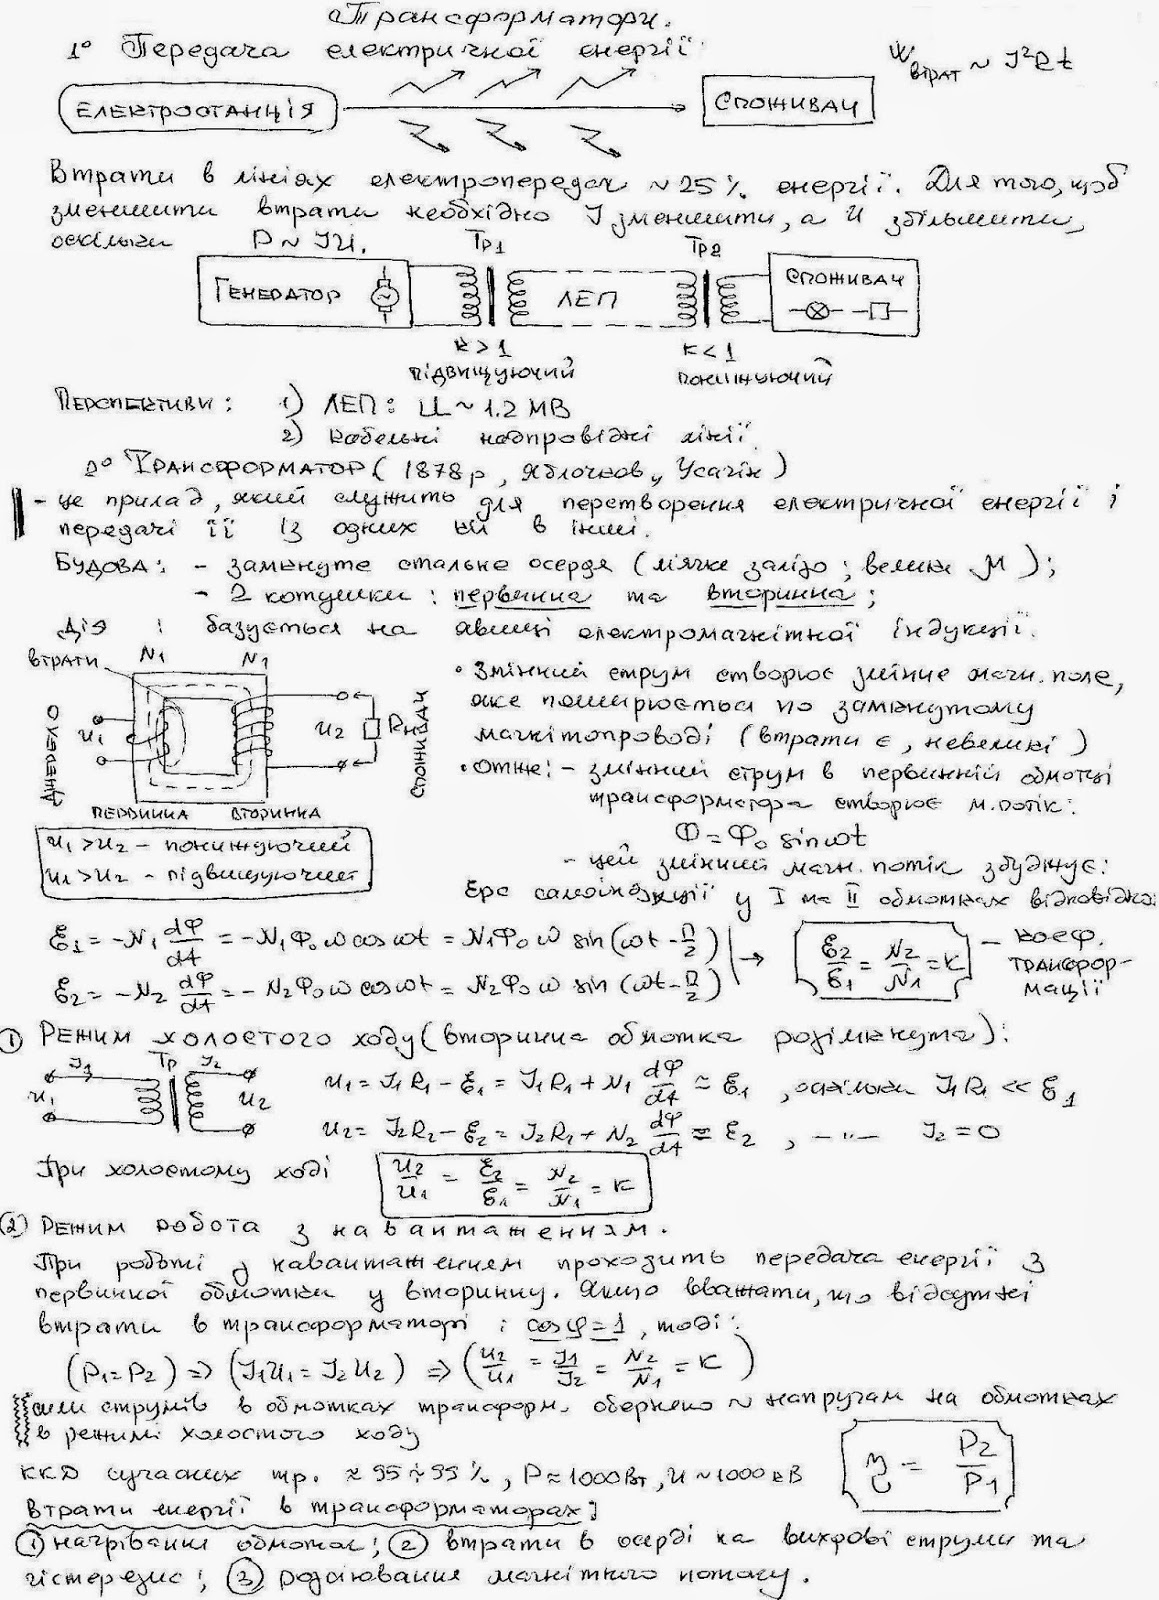 Трансформатори.
1° Передача електричної енергії
Wвтрат ~ I²Rt
ЕЛЕКТРОСТАНЦІЯ
СПОЖИВАЧ
Втрати в лініях електропередач ~25% енергії. Для того, щоб
зменшити втрати необхідно I зменшити, а U збільшити,
оскільки P ~ IU.
Тр1 Тр2
ГЕНЕРАТОР ЛЕП СПОЖИВАЧ
K>1 K<1
підвищуючий понижуючий
ПЕРСПЕКТИВИ: 1) ЛЕП: U ~ 1.2 МВ
2) Кабельні надпровідні лінії.
2° ТРАНСФОРМАТОР (1878р, Яблочков, Усагін)
- це прилад, який служить для перетворення електричної енергії і
передачі її із одних в інші.
БУДОВА: - замкнуте стальне осердя (м'яке залізо; велика μ);
- 2 котушки: первинна та вторинна;
Дія: базується на явищі електромагнітної індукції.
ВТРАТИ N1 N1
ДЖЕРЕЛО U1 U2 Rн СПОЖИВАЧ
ПЕРВИНКА ВТОРИНКА
U1>U2 - понижуючий
U1>U2 - підвищуючий
• Змінний струм створює змінне магн. поле,
яке поширюється по замкнутому
магнітопроводі (втрати є, невеликі)
• Отже: - змінний струм в первинній обмотці
трансформатора створює м. потік:
Ф = Ф₀ sinωt
- цей змінний магн. потік збуджує:
Ерс самоіндукції у I та II обмотках відповідно:
ℰ1 = -N1 dФ/dt = -N1Ф₀ω cosωt = N1Ф₀ω sin(ωt - П/2)
ℰ2 = -N2 dФ/dt = -N2Ф₀ω cosωt = N2Ф₀ω sin(ωt - П/2)
→ ℰ2/ℰ1 = N2/N1 = K - коеф.
ТРАНСФОР-
МАЦІЇ
① РЕЖИМ холостого ходу (вторинна обмотка розімкнута):
I1 Тр I2
U1 U2
U1 = I1R1 - ℰ1 = I1R1 + N1 dФ/dt ≃ ℰ1, оскільки I1R1 << ℰ1
U2 = I2R2 - ℰ2 = I2R2 + N2 dФ/dt ≃ ℰ2, -"- I2 = 0
При холостому ході U2/U1 = ℰ2/ℰ1 = N2/N1 = K
② РЕЖИМ робота з навантаженням.
При роботі з навантаженням проходить передача енергії з
первинної обмотки у вторинну. Якщо вважати, що відсутні
втрати в трансформаторі і cosφ=1, тоді:
(P1=P2) => (I1U1 = I2U2) => (U2/U1 = I1/I2 = N2/N1 = K)
сили струмів в обмотках трансформ. обернено ~ напругам на обмотках
в режимі холостого ходу
ККД сучасних тр. ≈ 95÷99%, P≈1000Вт, U~1000кВ
η = P2/P1
Втрати енергії в трансформаторах:
① нагрівання обмоток; ② втрати в осерді на вихрові струми та
гістерезис; ③ розсіювання магнітного потоку.